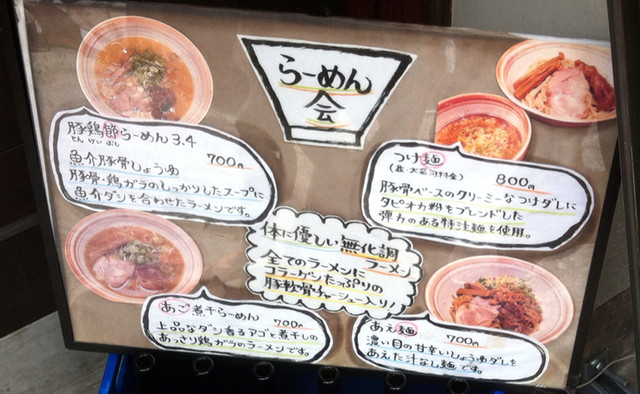 らーめん
会
豚鶏節らーめん3.4
とん けい ぶし
700円
魚介豚骨しょうゆ
豚骨・鶏ガラのしっかりしたスープに
魚介ダシを合わせたラーメンです。
つけ麺
800円
豚骨ベースのクリーミーなつけダレに
タピオカ粉をブレンドした
弾力のある特注麺を使用。
体に優しい無化調
ラーメン
全てのラーメンに
コラーゲンたっぷりの
豚軟骨チャーシュー入り!
あご煮干らーめん
700円
上品なダシ香るアゴと煮干しの
あっさり鶏ガラのラーメンです。
あえ麺
700円
濃い目の甘辛いしょうゆダレを
あえた汁なし麺です。